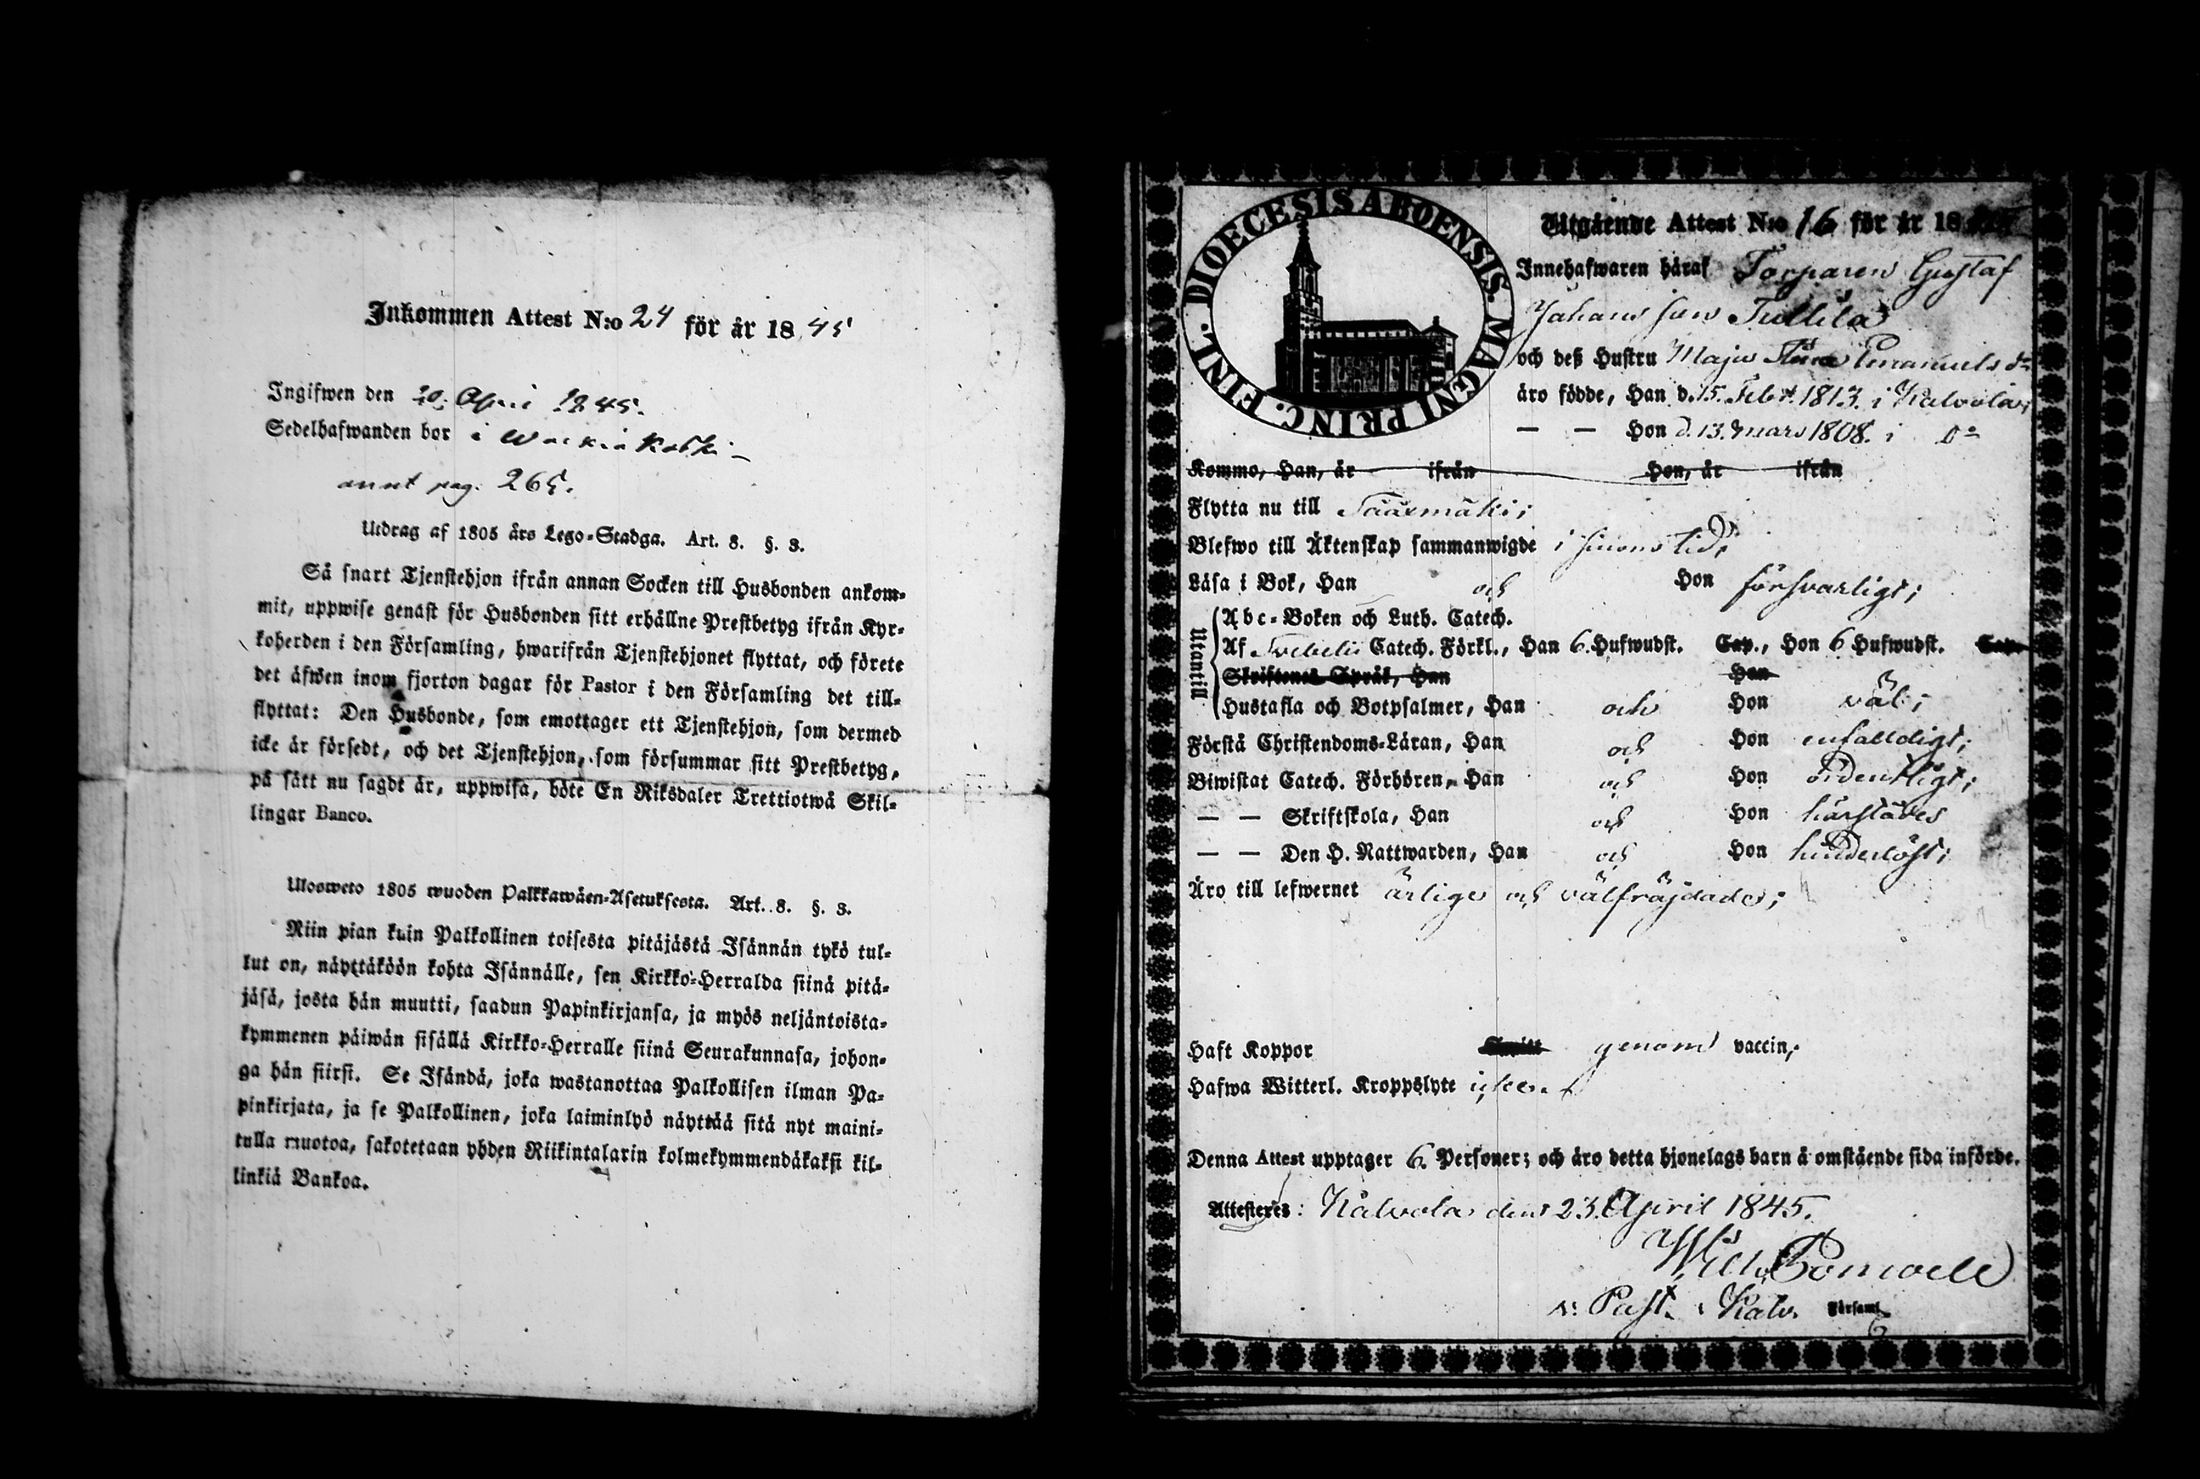 Inkommen Attest N:o 24 för år 1845
Ingifwen den 30 April 1845.
Sedelhafwanden bor i
annot pag. 265.
Utdrag af 1805 års Lego-Stadga. Art. 8. §. 3.
Så snart Tjenstehjon ifrån annan Socken till Husbonden ankom-
mit, uppwise genast för Husbonden sitt erhållne Prestbetyg ifrån Kyr-
koherden i den Församling, hwarifrån Tjenstehjonet flyttat, och förete
det äfwen inom fjorton dagar för Pastor i den Församling det till-
flyttat: Den Husbonde, som emottager ett Tjenstehjon, som dermed
icke är försedt, och det Tjenstehjon, som försummar sitt Prestbetyg,
på sätt nu sagdt är, uppwisa, böte En Riksdaler Trettiotwå Skil-
lingar Banco.
Ulosweto 1805 wuoden Palkkawäen-Asetuksesta. Art. 8. §. 3.
Niin pian kuin Palkollinen toisesta pitäjästä Isännän tykö tul-
lut on, näyttäköön kohta Isännälle, sen Kirkko-Herralda siinä pitä-
jäsä, josta hän muutti, saadun Papinkirjansa, ja myös neljäntoista-
kymmenen päiwän sisällä Kirkko-Herralle siinä Seurakunnasa, johon-
ga hän siirsi. Se Isändä, joka wastanottaa Palkollisen ilman Pa-
pinkirjata, ja se Palkollinen, joka laiminlyö näyttää sitä nyt maini-
tulla muotoa, sakotetaan yhden Riikintalarin kolmekymmendäkaksi kil-
linkiä Bankoa.
DIOECESIS ABOENSIS. MAGNI PRINC. FINL.
Utgående Attest N:o 16 för år 18
Innehafwaren häraf Torparen Gustaf
Johansson Tullila
och deß Hustru Maja Stina Emanuels dr
äro födde, Han d. 15. Febr. 1813. i Kalvola;
— — Hon d. 13. Mars 1808. i Do
Komma, Han, år ifrån Hon, år ifrån
Flytta nu till Sääxmäki;
Blefwo till Äktenskap sammanwigde i sinom tid;
Läsa i Bok, Han och Hon försvarligt;
Utantill
Abc-Boken och Luth. Catech.
Af Svebelii Catech. Förkl., Han 6 Hufwudst. Cap., Hon 6 Hufwudst. Cap.
Skriftenes Språk, Han Hon
Hustafla och Botpsalmer, Han och Hon väl;
Förstå Christendoms-Läran, Han och Hon enfalldigt;
Biwistat Catech. Förhören, Han och Hon ordentligt;
— — Skriftskola, Han och Hon härstädes
— — Den H. Nattwarden, Han och Hon hinderlöst;
Äro till lefwernet ärliga och välfräjdade;
Haft Koppor genom vaccin;
Hafwa Witterl. Kroppslyte icke.
Denna Attest upptager 6. Personer; och äro detta hjonelags barn å omstående sida införde.
Attesteres: Kalvola den 23. April 1845.
v. Past. i Kalv. Församl.